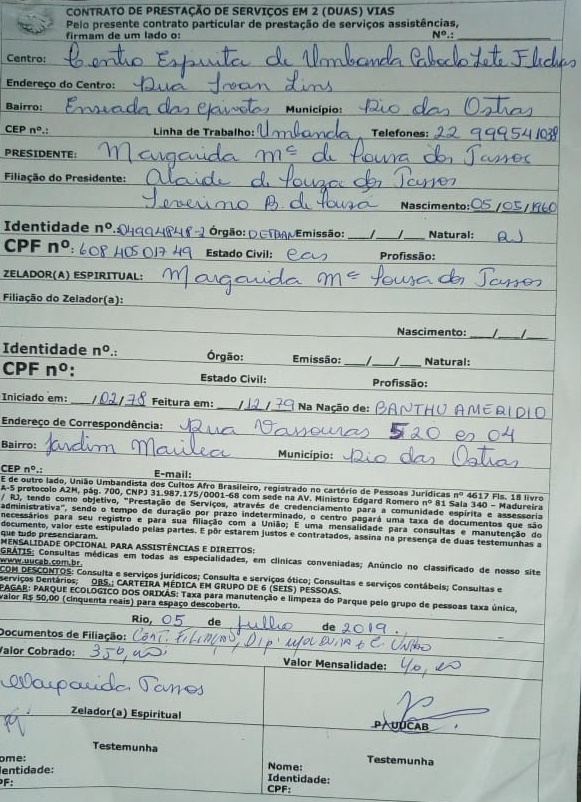 CONTRATO DE PRESTAÇÃO DE SERVIÇOS EM 2 (DUAS) VIAS
Pelo presente contrato particular de prestação de serviços assistências,
firmam de um lado o: Nº.:
Centro: Centro Espirita de Umbanda Caboclo Sete Flechas
Endereço do Centro: Rua Ivan Lins
Bairro: Enseada das gaivotas Município: Rio das Ostras
CEP nº.: Linha de Trabalho: Umbanda Telefones: 22 999541038
PRESIDENTE: Margarida Mª de Sousa dos Passos
Filiação do Presidente: Alaide de Souza dos Passos
Severino B. de Sousa Nascimento: 05/05/1960
Identidade nº.: 04994848-2 Órgão: DETRAN Emissão: __/__/__ Natural: RJ
CPF nº: 608 405 017 49 Estado Civil: cas Profissão:
ZELADOR(A) ESPIRITUAL: Margarida Mª Sousa dos Passos
Filiação do Zelador(a):
Nascimento: __/__/__
Identidade nº.: Órgão: Emissão: __/__/__ Natural:
CPF nº: Estado Civil: Profissão:
Iniciado em: __/02/78 Feitura em: __/12/79 Na Nação de: BANTHU AMERIDIO
Endereço de Correspondência: Rua Vassouras 520 cs 04
Bairro: Jardim Mariléa Município: Rio das Ostras
CEP nº.: E-mail:
E de outro lado, União Umbandista dos Cultos Afro Brasileiro, registrado no cartório de Pessoas Jurídicas nº 4617 Fls. 18 livro
A-5 protocolo A2M, pág. 700, CNPJ 31.987.175/0001-68 com sede na AV. Ministro Edgard Romero nº 81 Sala 340 – Madureira
/ RJ, tendo como objetivo, "Prestação de Serviços, através de credenciamento para a comunidade espírita e assessoria
administrativa", sendo o tempo de duração por prazo indeterminado, o centro pagará uma taxa de documentos que são
necessários para seu registro e para sua filiação com a União; E uma mensalidade para consultas e manutenção do
documento, valor este estipulado pelas partes. E pôr estarem justos e contratados, assina na presença de duas testemunhas a
que tudo presenciaram.
MENSALIDADE OPCIONAL PARA ASSISTÊNCIAS E DIREITOS:
GRÁTIS: Consultas médicas em todas as especialidades, em clinicas conveniadas; Anúncio no classificado de nosso site
www.uucab.com.br.
COM DESCONTOS: Consulta e serviços jurídicos; Consulta e serviços ótico; Consultas e serviços contábeis; Consultas e
serviços Dentários; OBS.: CARTEIRA MÉDICA EM GRUPO DE 6 (SEIS) PESSOAS.
PAGAR: PARQUE ECOLOGICO DOS ORIXÁS: Taxa para manutenção e limpeza do Parque pelo grupo de pessoas taxa única,
valor R$ 50,00 (cinquenta reais) para espaço descoberto.
Rio, 05 de Julho de 2019.
Documentos de Filiação:
Valor Cobrado: 350,00 Valor Mensalidade: 40,00
Margarida Passos
Zelador(a) Espiritual P/UUCAB
Testemunha Testemunha
ome: Nome:
dentidade: Identidade:
PF: CPF: